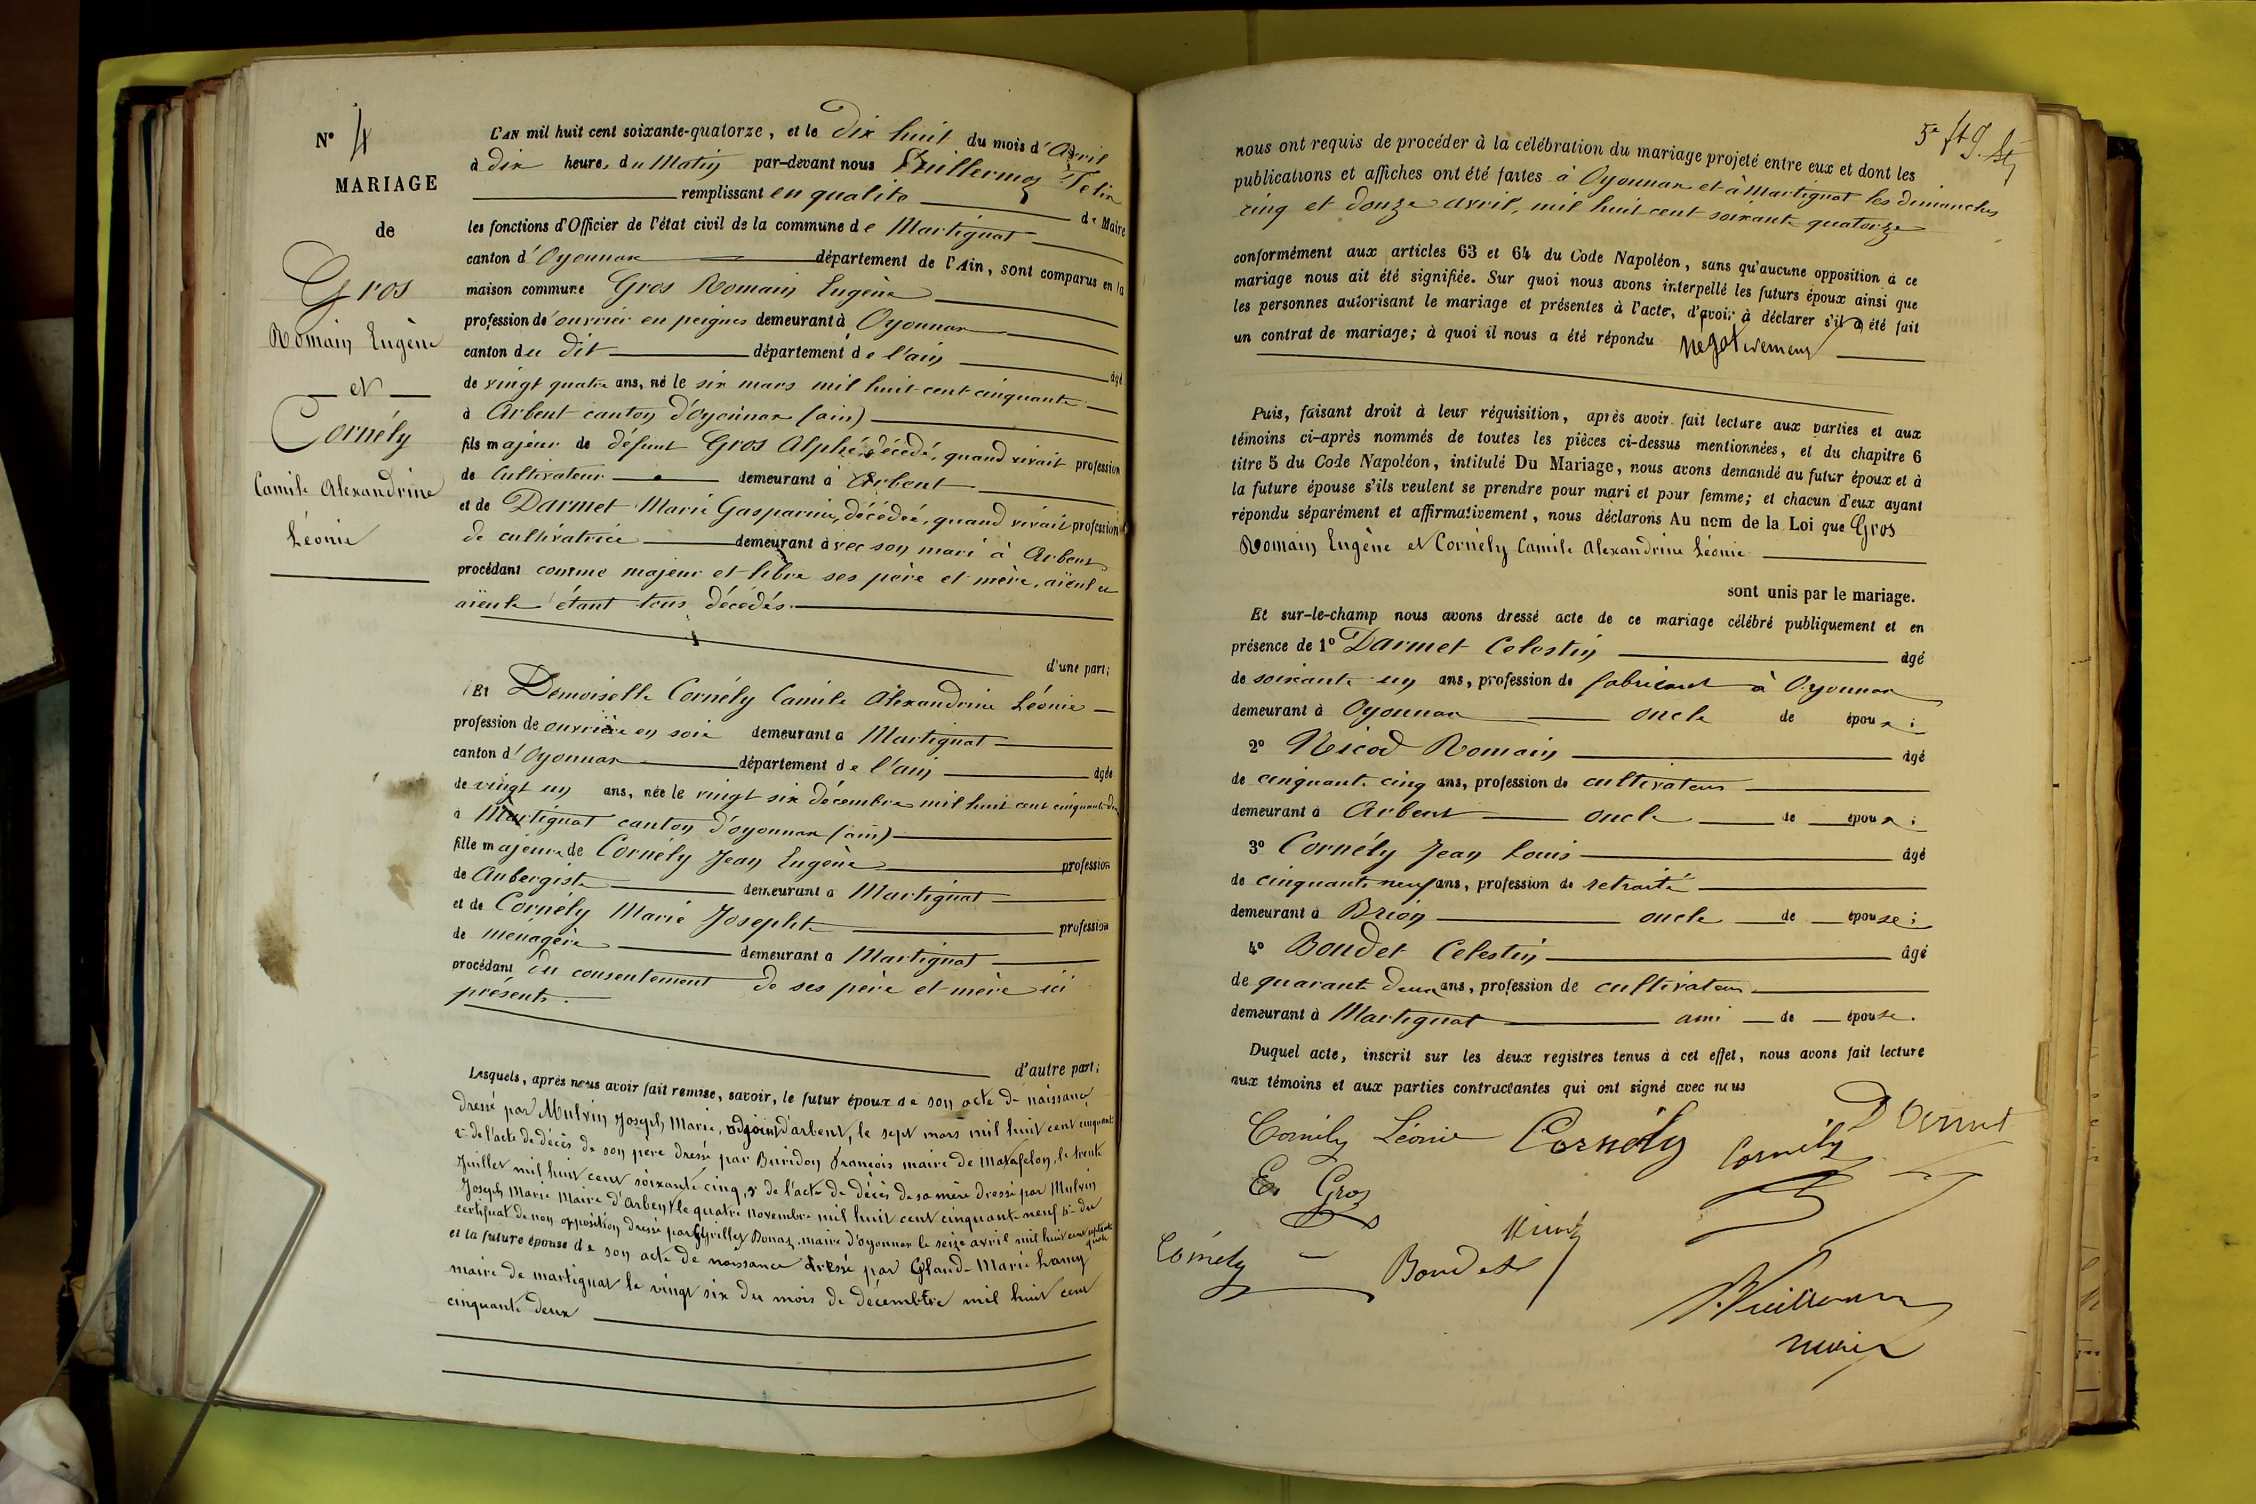 N° 4
MARIAGE
de
Gros
Romain Eugène
et
Cornély
Camile Alexandrine
Léonie
L'AN mil huit cent soixante-quatorze, et le dix huit du mois d'Avril
à dix heure, du Matin par-devant nous Vuillermoz Felix
remplissant en qualité de Maire
les fonctions d'Officier de l'état civil de la commune de Martignat
canton d'Oyonnax département de l'Ain, sont comparus en la
maison commune Gros Romain Eugène
profession de ouvrier en peignes demeurant à Oyonnax
canton du dit département de l'ain
âgé
de vingt quatre ans, né le six mars mil huit cent cinquante
à Arbent canton d'Oyonnax (ain)
fils majeur de défunt Gros Alphé, décédé, quand vivait profession
de Cultivateur demeurant à Arbent
et de Darmet Marie Gasparine, décédée, quand vivait profession
de cultivatrice demeurant avec son mari à Arbent
procédant comme majeur et libre ses père et mère, aïeul et
aïeule étant tous décédés.
d'une part;
Et Demoiselle Cornély Camile Alexandrine Léonie
profession de ouvrière en soie demeurant à Martignat
canton d'Oyonnax département de l'ain âgée
de vingt un ans, née le vingt six décembre mil huit cent cinquante deux
à Martignat canton d'oyonnax (ain)
fille majeure de Cornély Jean Eugène profession
de Aubergiste demeurant à Martignat
et de Cornély Marie Josephte profession
de menagère demeurant à Martignat
procédant du consentement de ses père et mère ici
présents.
d'autre part;
Lesquels, après nous avoir fait remise, savoir, le futur époux de son acte de naissance
dressé par Mulvin Joseph Marie, adjoint d'arbent, le sept mars mil huit cent cinquante
2° de l'acte de décès de son père dressé par Buridon François maire de Matafelon, le trente
Juillet mil huit cent soixante cinq, 3° de l'acte de décès de sa mère dressé par Mulvin
Joseph Marie Maire d'Arbent le quatre novembre mil huit cent cinquante neuf 4° du
certificat de non opposition dressé par Bonaz, maire d'oyonnax le seize avril mil huit cent septante quatre
et la future épouse de son acte de naissance dressé par Claude Marie Lamy
maire de martignat le vingt six du mois de décembre mil huit cent
cinquante deux
nous ont requis de procéder à la célébration du mariage projeté entre eux et dont les
publications et affiches ont été faites à Oyonnax et à Martignat les dimanches
cinq et douze avril, mil huit cent soixante quatorze
conformément aux articles 63 et 64 du Code Napoléon, sans qu'aucune opposition à ce
mariage nous ait été signifiée. Sur quoi nous avons interpellé les futurs époux ainsi que
les personnes autorisant le mariage et présentes à l'acte, d'avoir à déclarer s'il a été fait
un contrat de mariage; à quoi il nous a été répondu négativement
Puis, faisant droit à leur réquisition, après avoir fait lecture aux parties et aux
témoins ci-après nommés de toutes les pièces ci-dessus mentionnées, et du chapitre 6
titre 5 du Code Napoléon, intitulé Du Mariage, nous avons demandé au futur époux et à
la future épouse s'ils veulent se prendre pour mari et pour femme; et chacun d'eux ayant
répondu séparément et affirmativement, nous déclarons Au nom de la Loi que Gros
Romain Eugène et Cornély Camile Alexandrine Léonie
sont unis par le mariage.
Et sur-le-champ nous avons dressé acte de ce mariage célébré publiquement et en
présence de 1° Darmet Celestin âgé
de soixante un ans, profession de fabricant à Oyonnax
demeurant à Oyonnax oncle de époux;
2° Nicod Romain âgé
de cinquante cinq ans, profession de cultivateur
demeurant à Arbent oncle de époux;
3° Cornély Jean Louis âgé
de cinquante neuf ans, profession de retraité
demeurant à Brion oncle de épouse;
4° Boudet Celestin âgé
de quarante deux ans, profession de cultivateur
demeurant à Martignat ami de épouse.
Duquel acte, inscrit sur les deux registres tenus à cet effet, nous avons fait lecture
aux témoins et aux parties contractantes qui ont signé avec nous
Cornély Léonie Cornély Cornély Darmet
E. Gros
Nicod
Cornely Boudet
Vuillermoz
maire